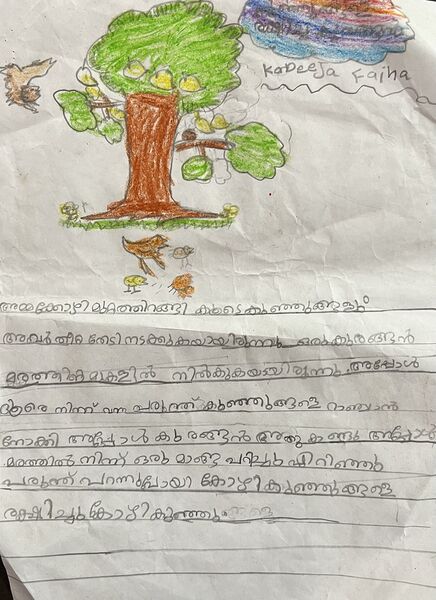 Kadeeja Faiha
അമ്മക്കോഴി മുറ്റത്തിറങ്ങി കൂടെ കുഞ്ഞുങ്ങളും
അവർ തീറ്റ തേടി നടക്കുകയായിരുന്നു ഒരു കുരങ്ങൻ
മരത്തിൻ മുകളിൽ നിൽകുകയയിരുന്നു അപ്പോൾ
ദൂരെ നിന്ന് വന്ന പരുന്ത് കുഞ്ഞുങ്ങളെ റാഞ്ചാൻ
നോക്കി അപ്പോൾ കുരങ്ങൻ അതു കണ്ടു അപ്പോൾ
മരത്തിൽ നിന്ന് ഒരു മാങ്ങ പറിച്ചു എറിഞ്ഞു
പരുന്ത് പറന്നുപോയി കോഴി കുഞ്ഞുങ്ങളെ
രക്ഷിച്ചു കോഴി കുഞ്ഞും